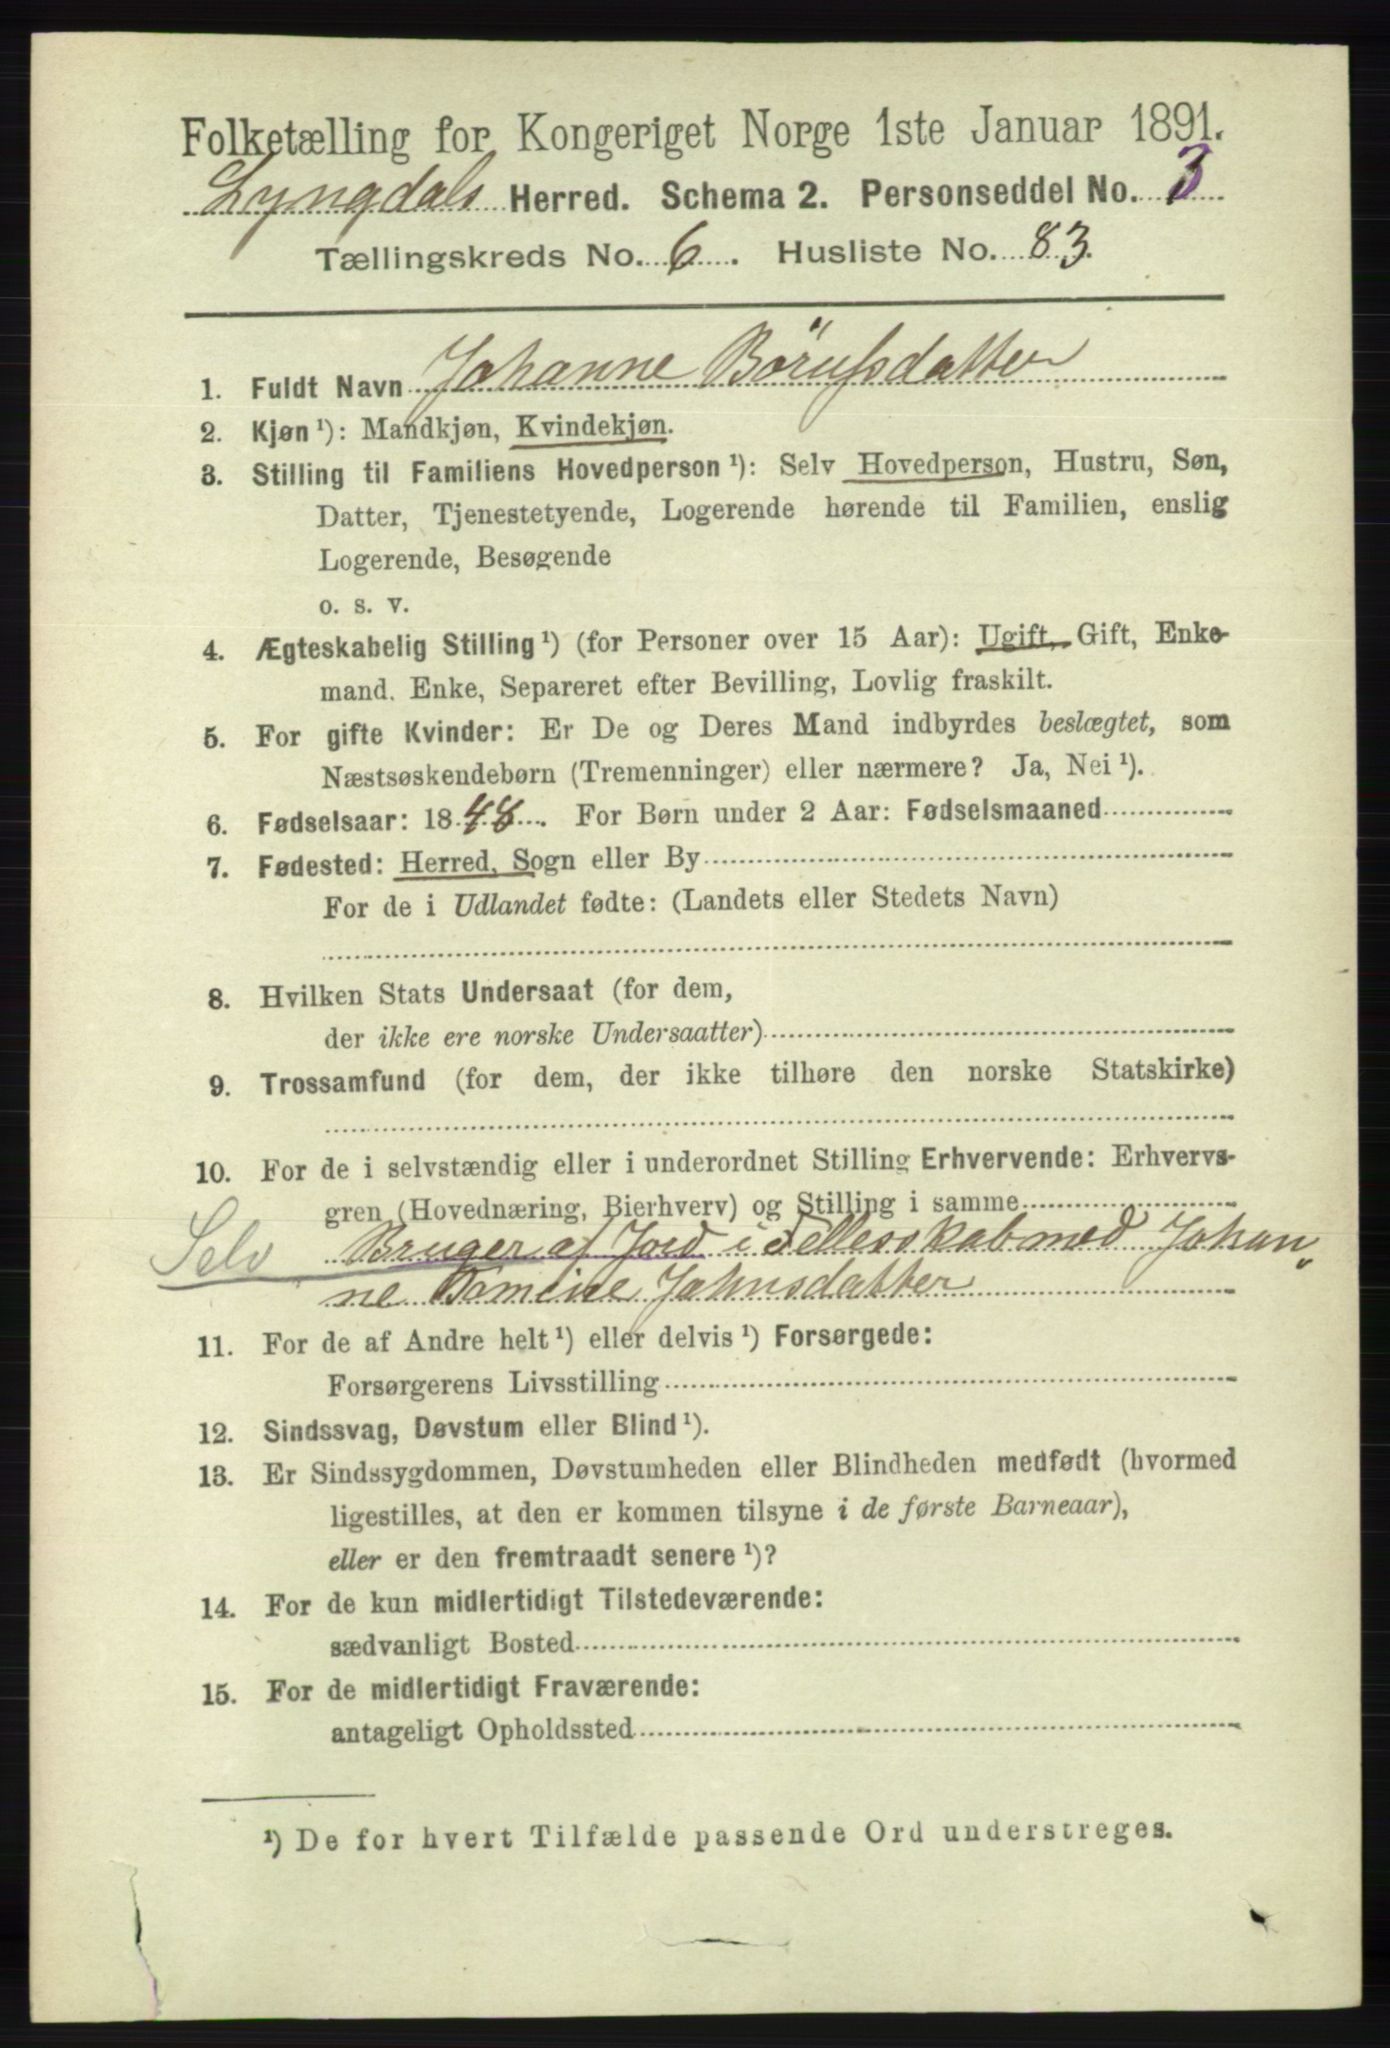 Folketælling for Kongeriget Norge 1ste Januar 1891.
Lyngdals Herred. Schema 2. Personseddel No. 3
Tællingskreds No. 6. Husliste No. 83.
1. Fuldt Navn Johanne Börufsdatter
2. Kjøn ¹): Mandkjøn, Kvindekjøn.
3. Stilling til Familiens Hovedperson ¹): Selv Hovedperson, Hustru, Søn,
Datter, Tjenestetyende, Logerende hørende til Familien, enslig
Logerende, Besøgende
o. s. v.
4. Ægteskabelig Stilling ¹) (for Personer over 15 Aar): Ugift, Gift, Enke-
mand. Enke, Separeret efter Bevilling, Lovlig fraskilt.
5. For gifte Kvinder: Er De og Deres Mand indbyrdes beslægtet, som
Næstsøskendebørn (Tremenninger) eller nærmere? Ja, Nei ¹).
6. Fødselsaar: 1848. For Børn under 2 Aar: Fødselsmaaned
7. Fødested: Herred, Sogn eller By
For de i Udlandet fødte: (Landets eller Stedets Navn)
8. Hvilken Stats Undersaat (for dem,
der ikke ere norske Undersaatter)
9. Trossamfund (for dem, der ikke tilhøre den norske Statskirke)
10. For de i selvstændig eller i underordnet Stilling Erhvervende: Erhvervs-
gren (Hovednæring, Bierhverv) og Stilling i samme
Selv Bruger af Jord i Fellesskab med Johan„
ne Johnsdatter
11. For de af Andre helt ¹) eller delvis ¹) Forsørgede:
Forsørgerens Livsstilling
12. Sindssvag, Døvstum eller Blind ¹).
13. Er Sindssygdommen, Døvstumheden eller Blindheden medfødt (hvormed
ligestilles, at den er kommen tilsyne i de første Barneaar),
eller er den fremtraadt senere ¹)?
14. For de kun midlertidigt Tilstedeværende:
sædvanligt Bosted
15. For de midlertidigt Fraværende:
antageligt Opholdssted
¹) De for hvert Tilfælde passende Ord understreges.